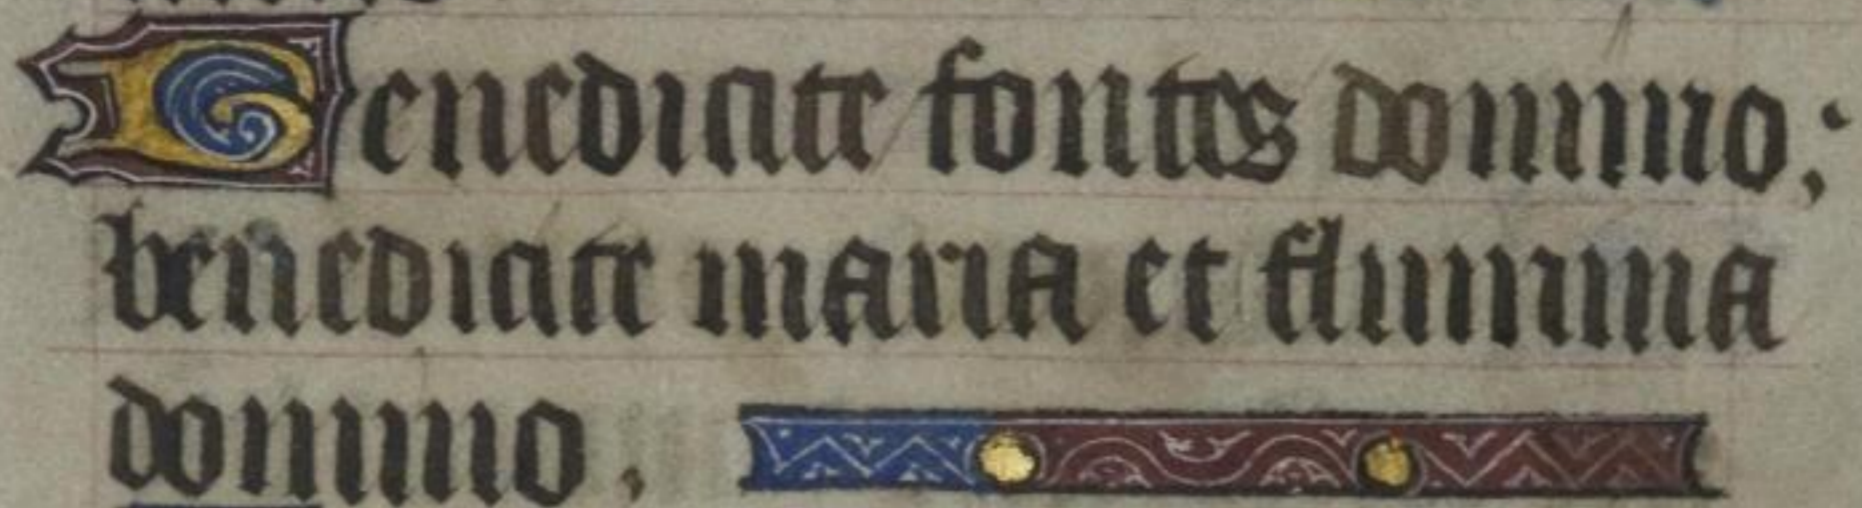 Benedicite fontes domino;
benedicite maria et flumina
domino.